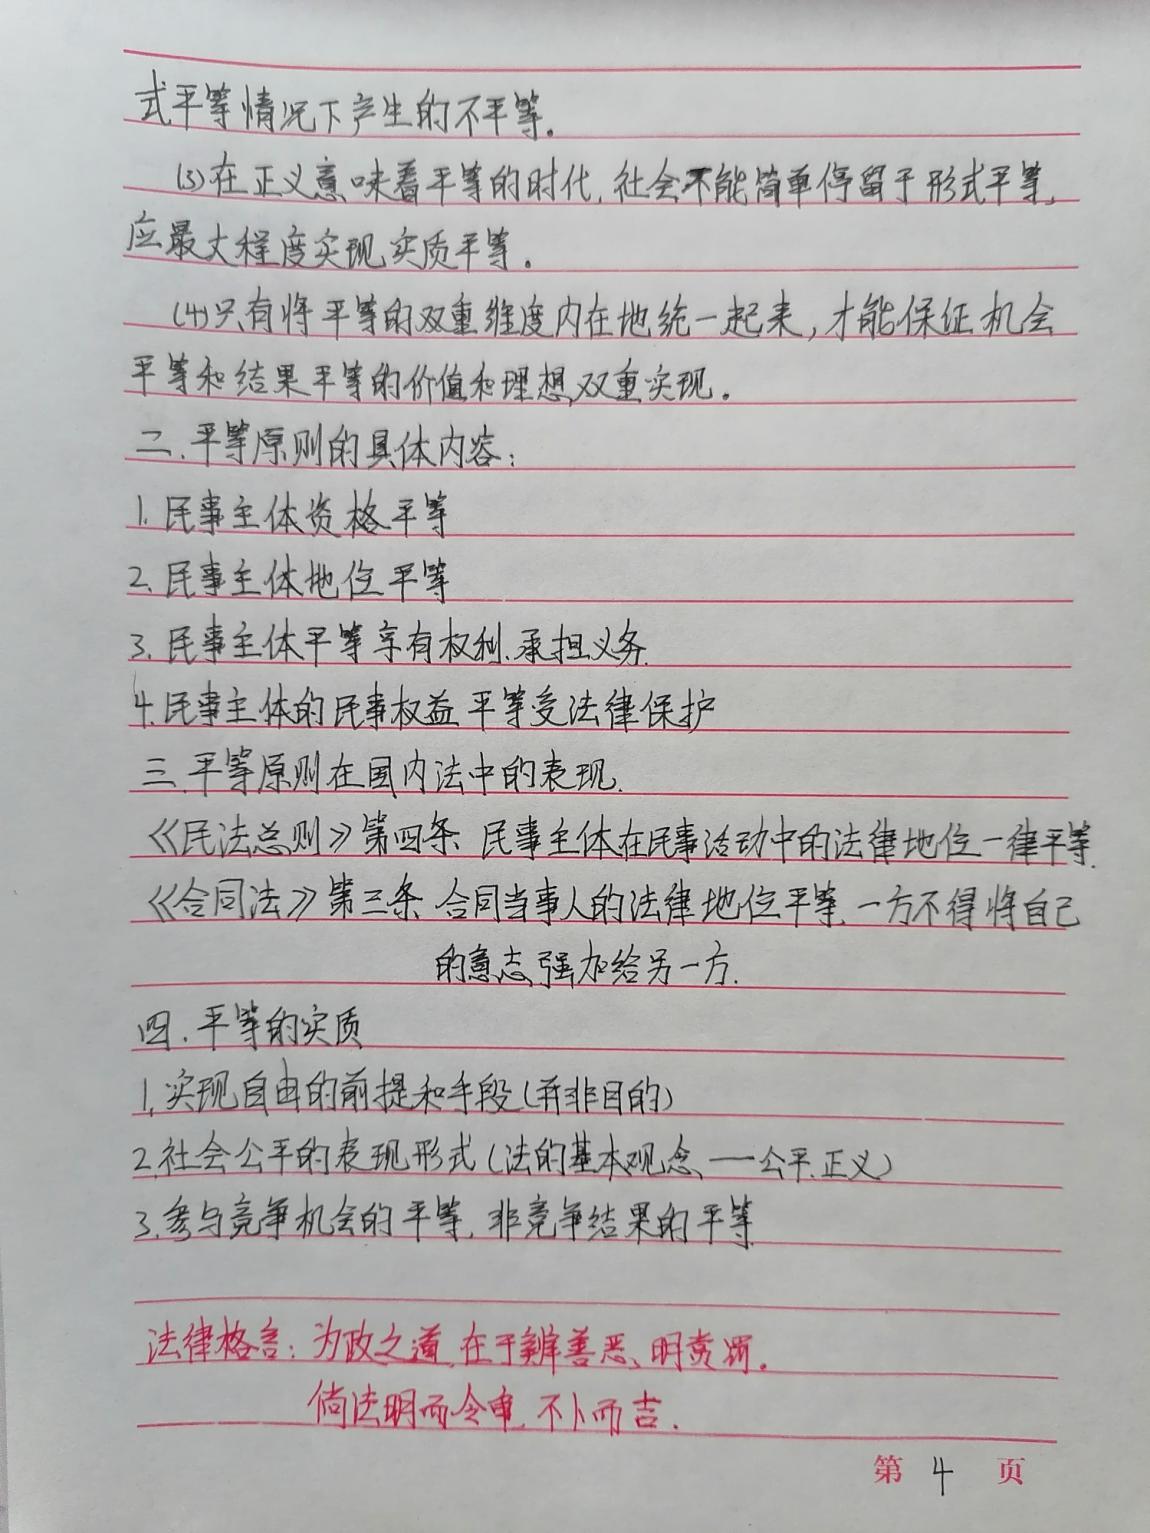 式平等情况下产生的不平等。
(3)在正义意味着平等的时代,社会不能简单停留于形式平等,
应最大程度实现实质平等。
(4)只有将平等的双重维度内在地统一起来,才能保证机会
平等和结果平等的价值和理想双重实现。
二.平等原则的具体内容:
1.民事主体资格平等
2.民事主体地位平等
3.民事主体平等享有权利、承担义务.
4.民事主体的民事权益平等受法律保护
三.平等原则在国内法中的表现.
《民法总则》第四条 民事主体在民事活动中的法律地位一律平等.
《合同法》第三条 合同当事人的法律地位平等,一方不得将自己
的意志强加给另一方.
四.平等的实质
1.实现自由的前提和手段(并非目的)
2.社会公平的表现形式(法的基本观念——公平.正义)
3.参与竞争机会的平等,非竞争结果的平等.
法律格言:为政之道,在于辨善恶、明赏罚。
倘法明而令审,不卜而吉.
第 4 页